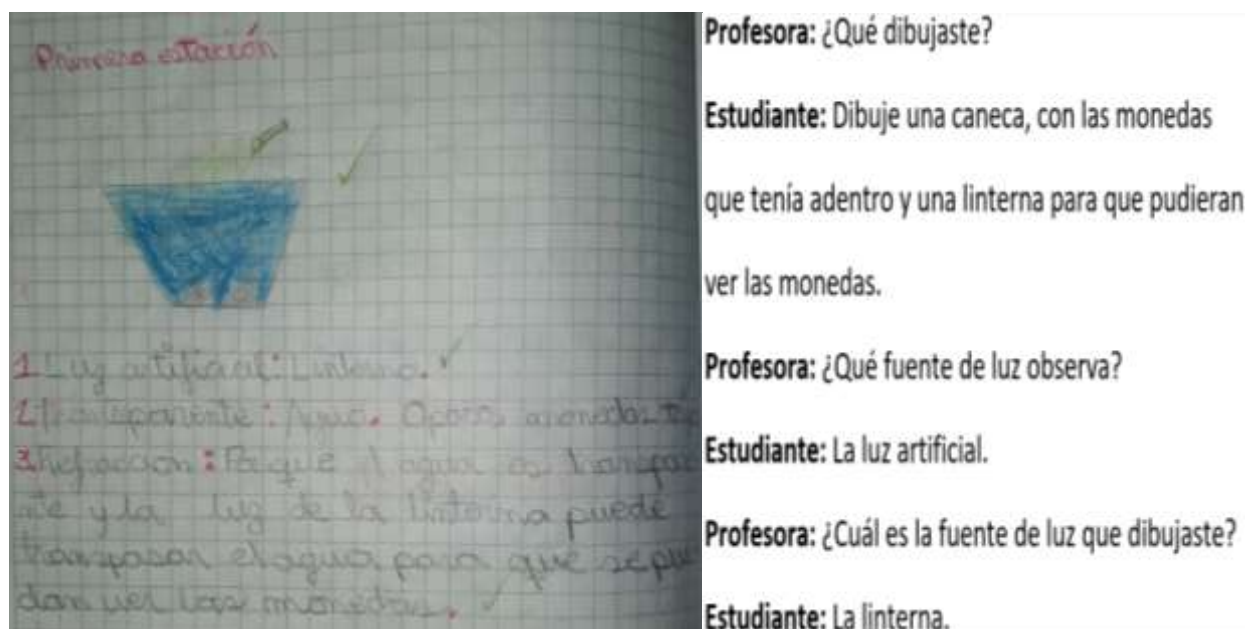 Primera estación
1 Luz artificial: Linterna.
2 transparente: Agua. Opacos monedas
3 refracción: Porque el agua es transpare
nte y la luz de la linterna puede
transpasar el agua para que se pue
dan ver las monedas.
Profesora: ¿Qué dibujaste?
Estudiante: Dibuje una caneca, con las monedas
que tenía adentro y una linterna para que pudieran
ver las monedas.
Profesora: ¿Qué fuente de luz observa?
Estudiante: La luz artificial.
Profesora: ¿Cuál es la fuente de luz que dibujaste?
Estudiante: La linterna.